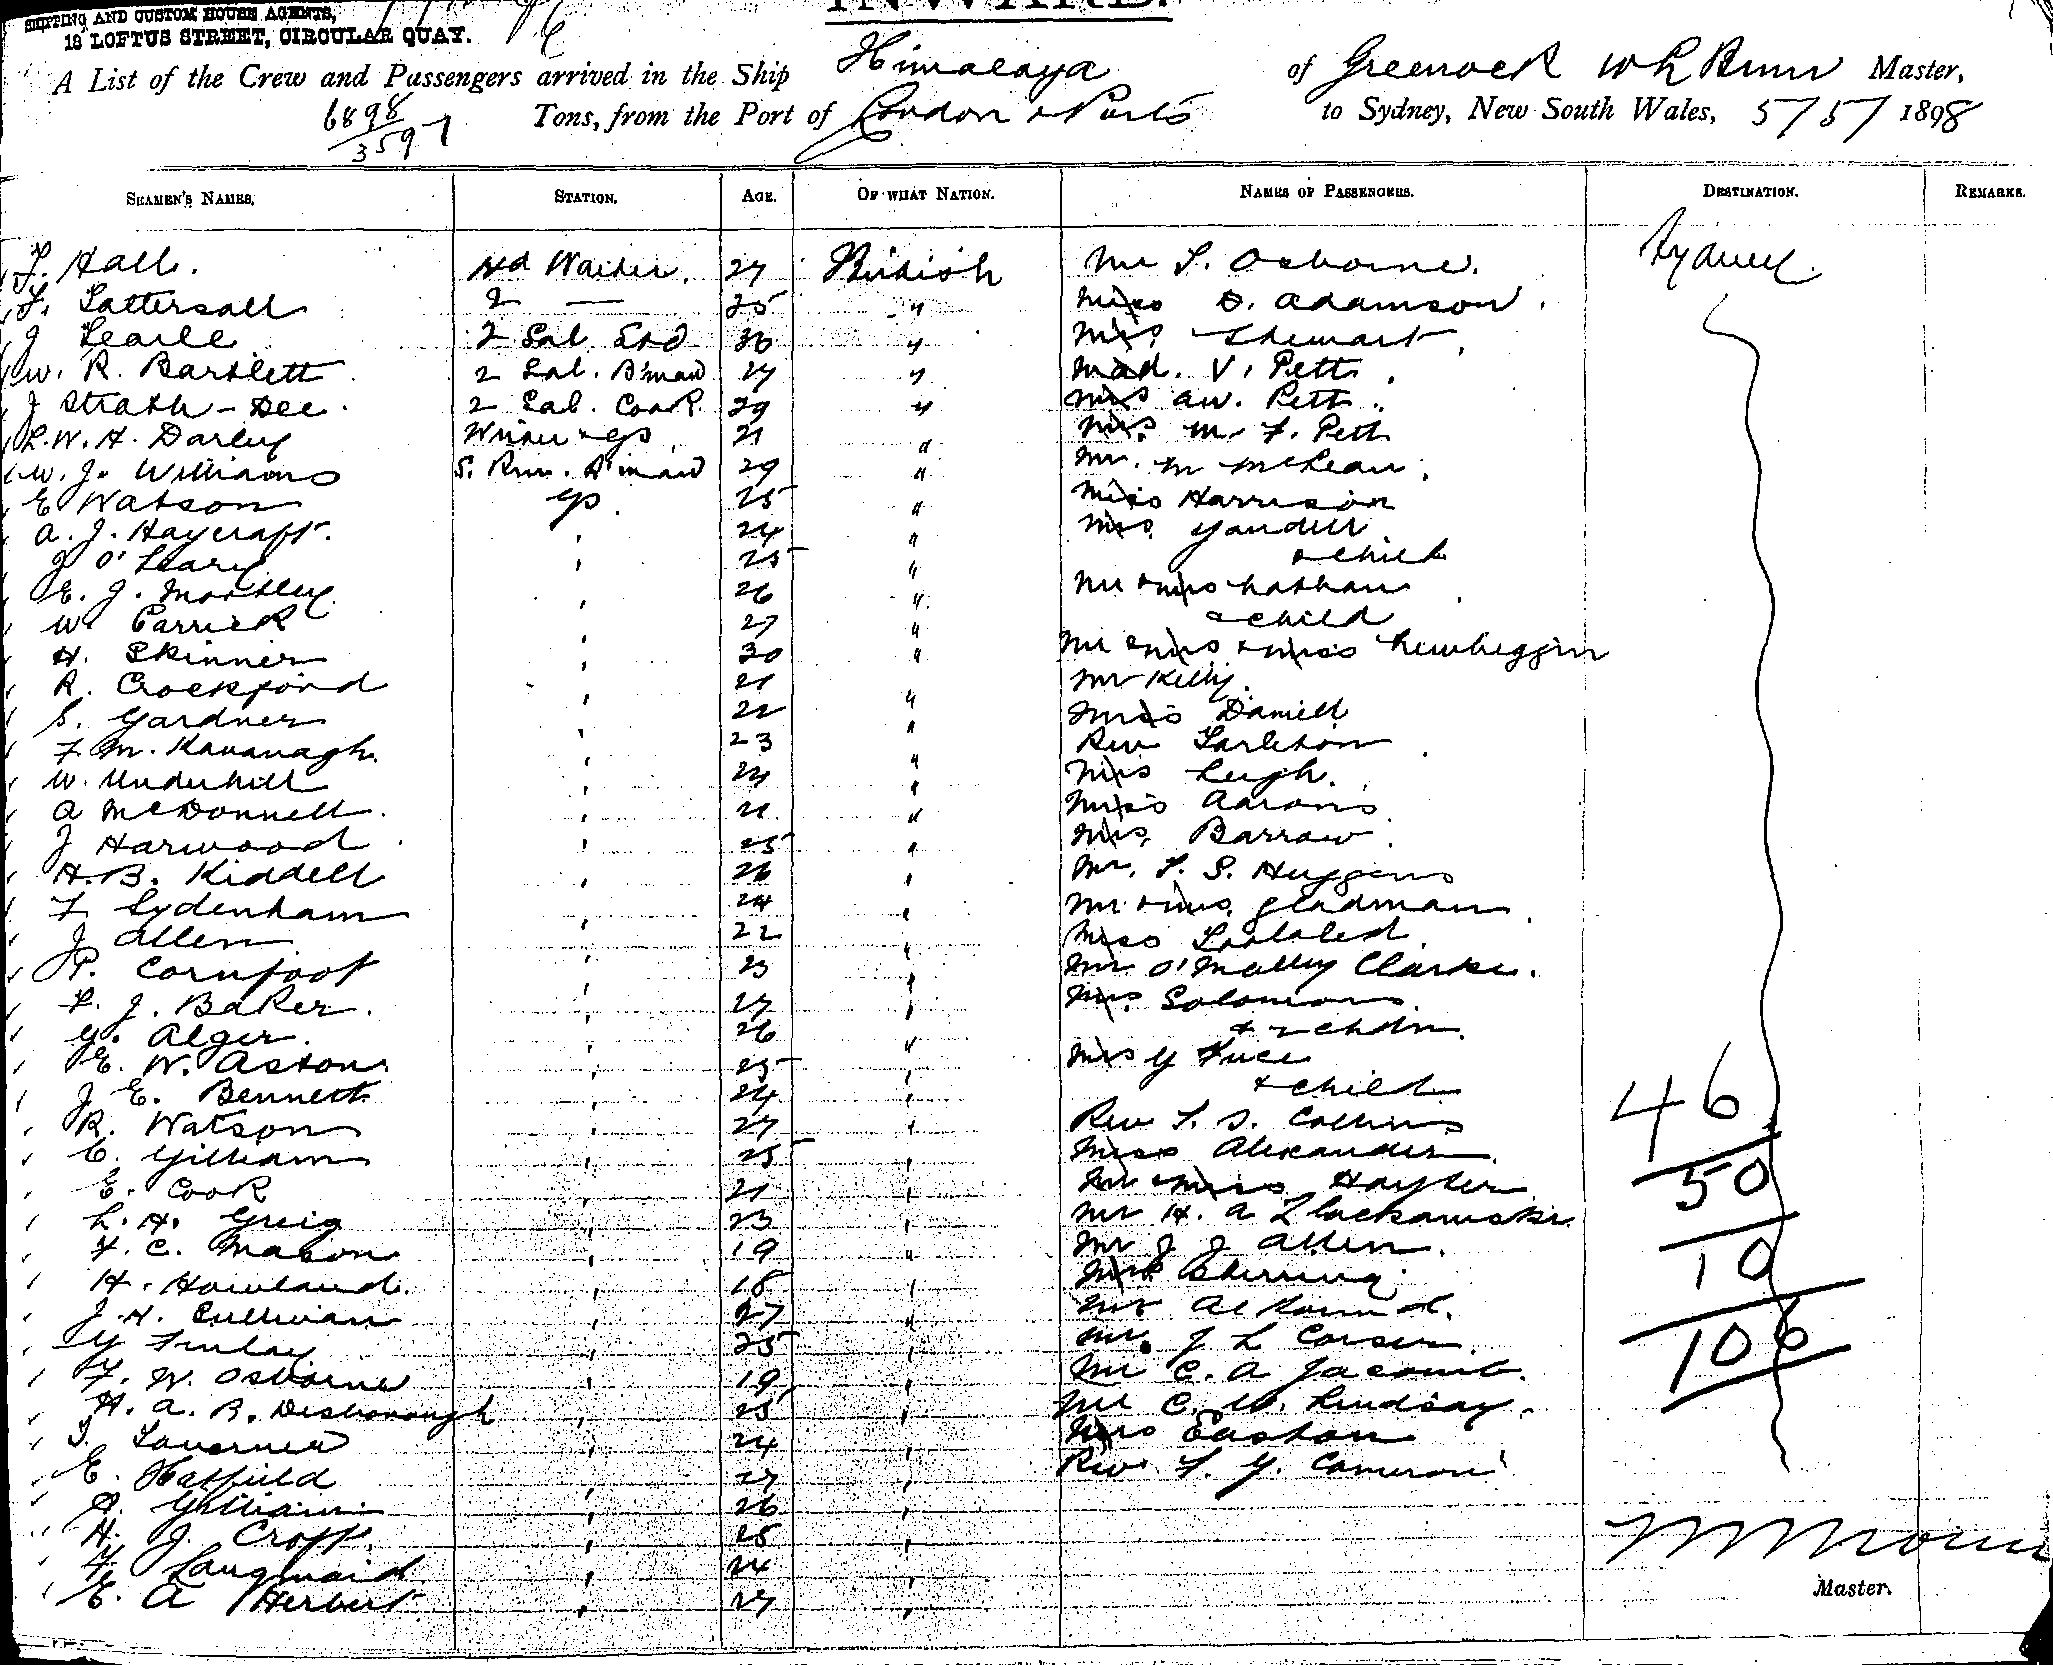 SHIPPING AND CUSTOM HOUSE AGENTS,
18 LOFTUS STREET, CIRCULAR QUAY.
INWARD.
A List of the Crew and Passengers arrived in the Ship Himalaya of Greenock Master,
6898
3597 Tons, from the Port of London & Ports to Sydney, New South Wales, 5/5/ 1898
SEAMEN'S NAMES. STATION. AGE. OF WHAT NATION. NAMES OF PASSENGERS. DESTINATION. REMARKS.
Hall. Hd Waiter. 27 British Mr Osborne. Sydney
2 — 25 " Miss D. Adamson.
J Searle 2 Sal. 30 " Mrs. Stewart.
W. R. Bartlett 2 Sal. B'man 27 " V. Pett.
J Strath-Dee. 2 Sal. Cook 29 " Miss Aw. Pett.
R. W. H. Darley 21 " Mrs. M. F. Pett
W. J. Williams S. Rm. B'man 29 " Mr. M McLean.
E Watson GS 25 " Miss Harrison
A. J. Haycraft. ' 24 " Mrs Yandell
J O'Leary ' 25 " & child
E. J. Mortley. ' 26 " Mr & Mrs Nathan
W Carrick ' 27 " & child
H. Skinner ' 30 " Mr & Mrs & Miss Newbiggin
R. Crockford ' 21 " Mr Kelly.
S. Gardner ' 22 " Miss Daniell
F M. Kavanagh ' 23 " Rev Tarleton
W. Underhill ' 24 " Miss Leigh.
A McDonnell. ' 21 " Miss Aarons
J Harwood ' 25 " Mrs. Barrow.
H. B. Kiddell ' 26 ' Mr. T. S. Huggins
F Sydenham ' 24 ' Mr & Mrs. Gladman.
J Allen ' 22 " Miss
P. Cornfoot ' 23 ' Mr O'Malley Clarke.
J. Baker. ' 27 ' Mrs. Solomons
G. Alger. ' 26 " & 2 chdn.
E. W. Aston. ' 25 ' Mrs G
J E. Bennett ' 24 ' & child 46
R. Watson ' 27 ' Rev T. S. Collins
C. Gilliam ' 25 ' Miss Alexander.
E. Cook ' 21 ' Mr & Miss Hayter 50
L. H. Greig ' 23 ' Mr H. A
F. C. Mason ' 19 " Mr J J Allen. 10
H. Howland. ' 18 '
J. H. Sullivan ' 27 " Mr
G Finlay ' 25 ' Mr. J L Corser. 106
F. W. Osborne ' 19 ' Mr C. A Jacomb.
H. A. R. Desborough ' 25 ' Mr C. W. Lindsay.
T. Taverner ' 24 ' Mrs Easton
E. Hatfield ' 27 ' Rev. T. G. Cameron
A. Gilliam ' 26 '
H. J. Croft. ' 25 '
F. Langmaid ' 24 '
E. A Herbert. ' 27 '
Master.